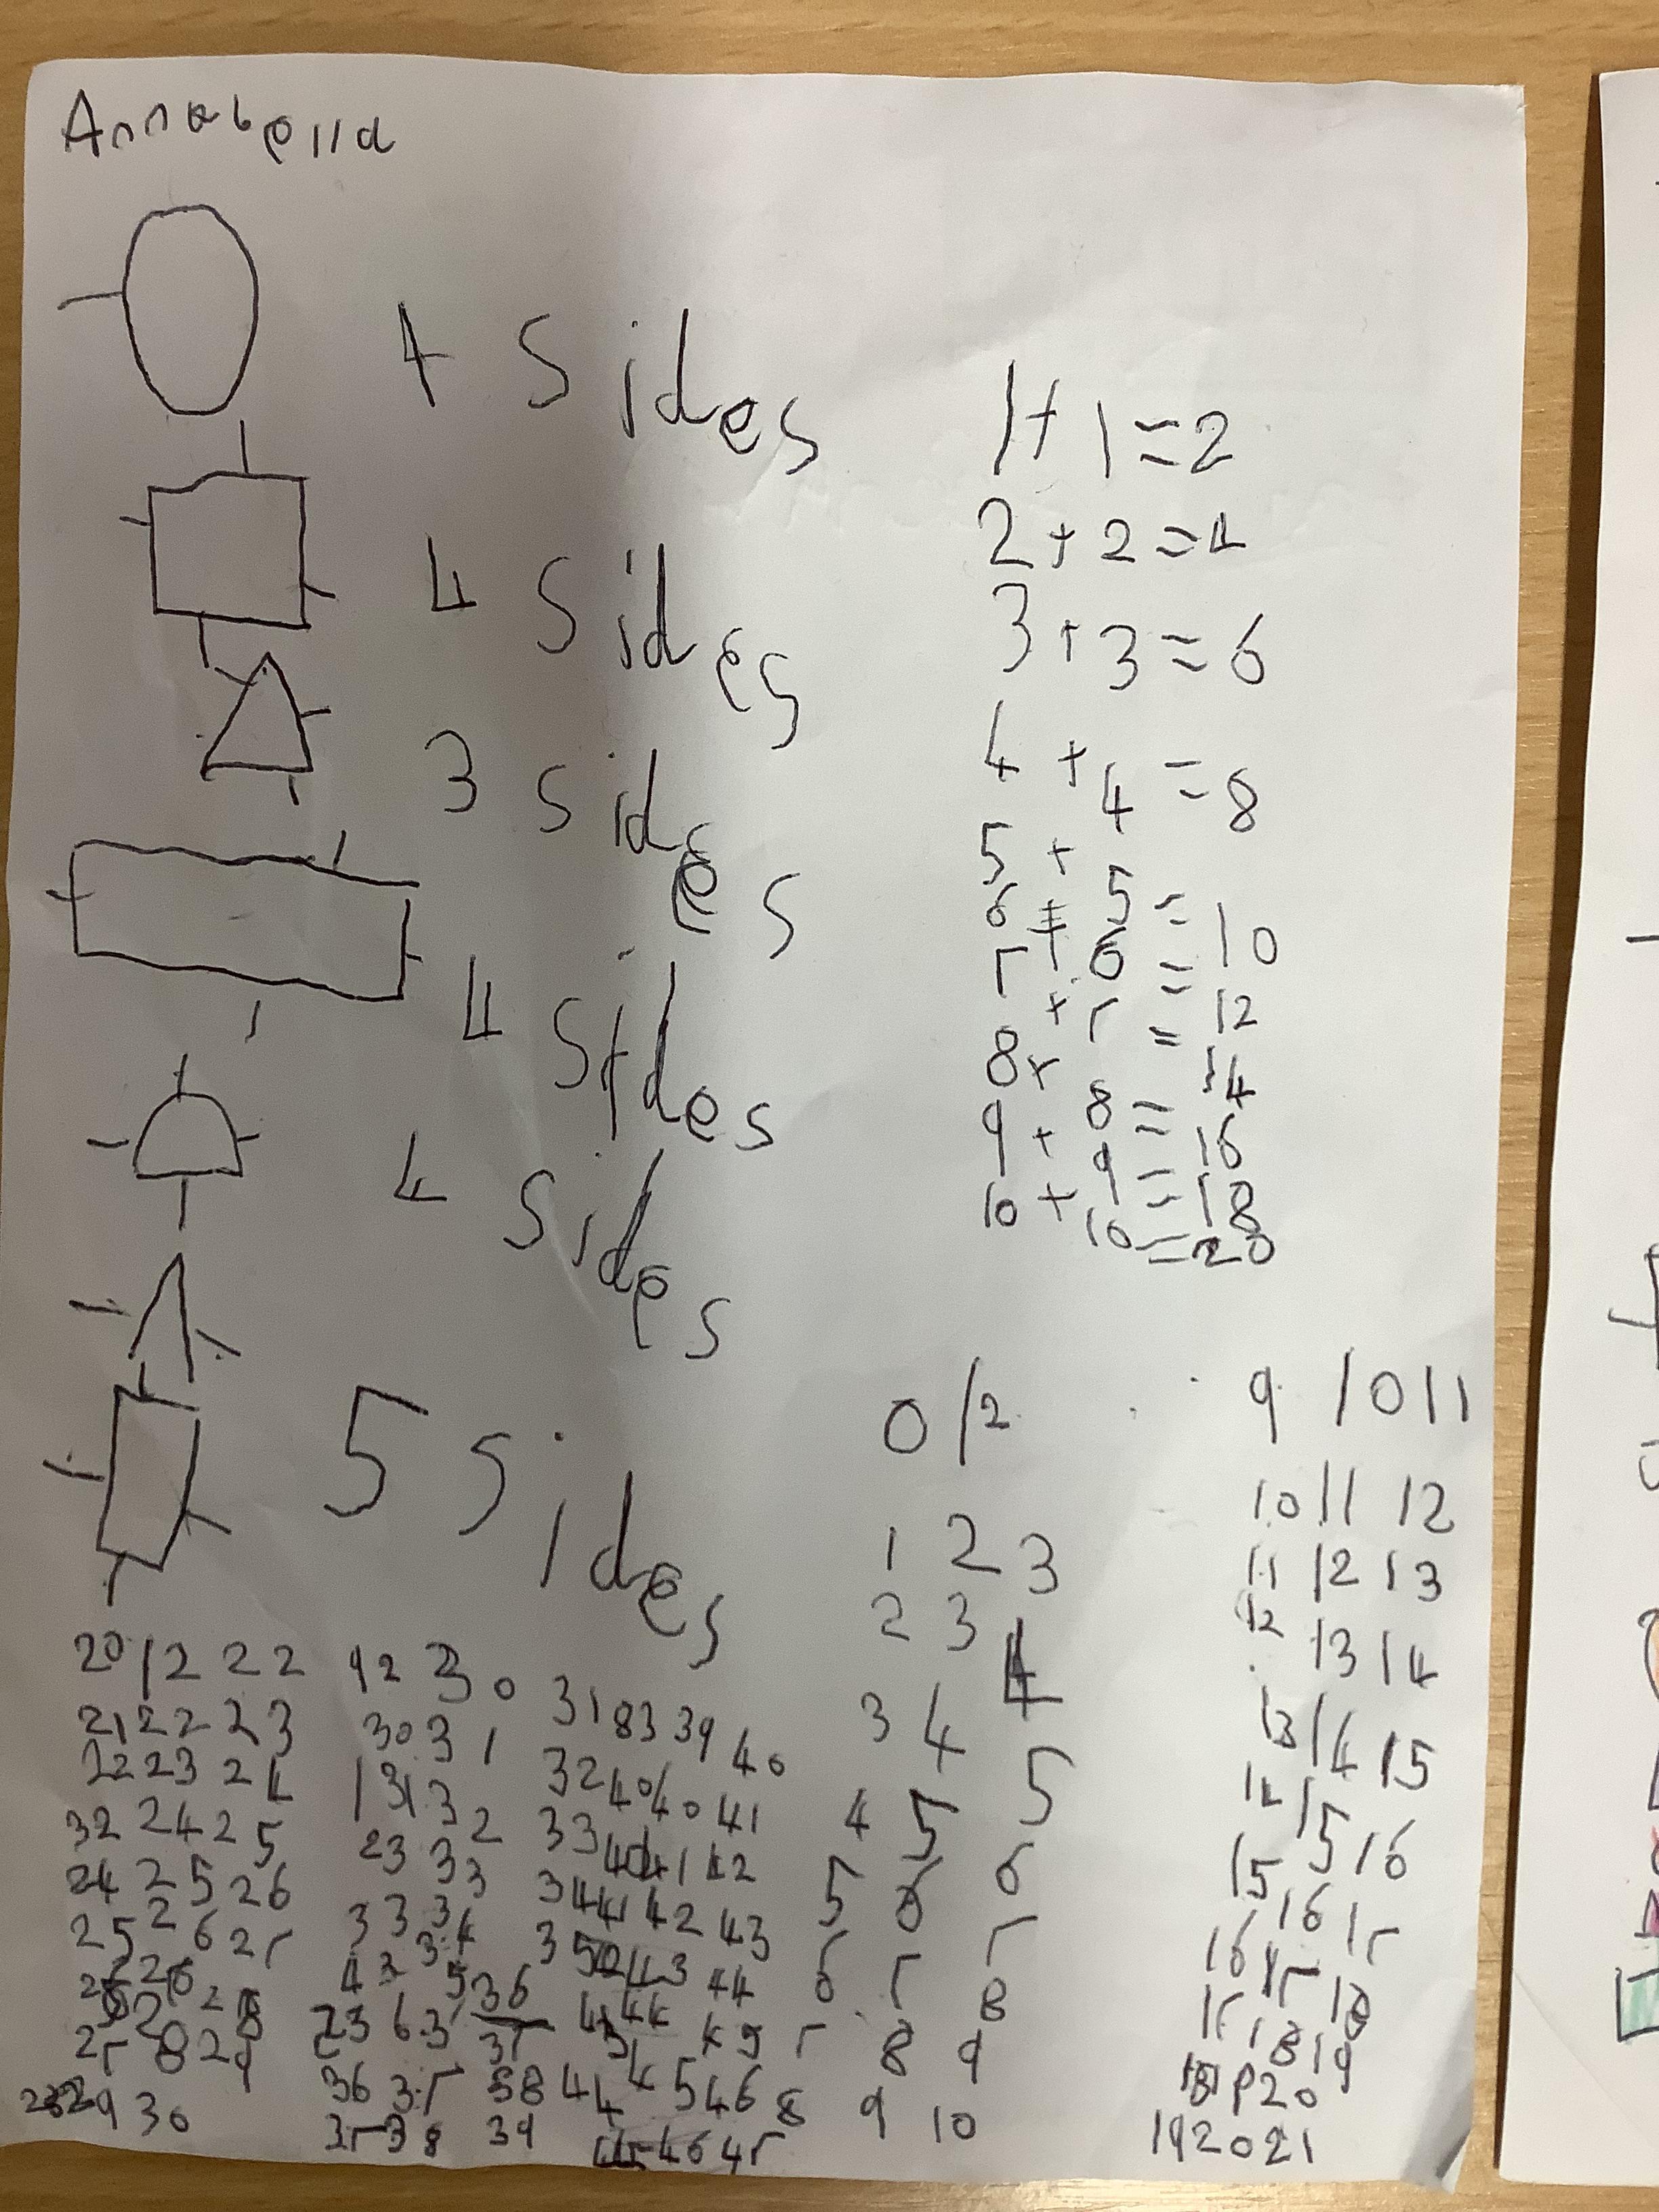 Annabella
1 sides
4 sides
3 sides
4 sides
4 sides
5 sides
1+1=2
2+2=4
3+3=6
4+4=8
5+5=10
6+6=12
7+7=14
8+8=16
9+9=18
10+10=20
0 1 2
1 2 3
2 3 4
3 4 5
4 5 6
5 6 7
6 7 8
7 8 9
8 9 10
9 10 11
10 11 12
11 12 13
12 13 14
13 14 15
14 15 16
15 16 17
16 17 18
17 18 19
18 19 20
19 20 21
20 12 22
21 22 23
22 23 24
32 24 25
24 25 26
25 26 27
27 28 29
29 30
92 30 31
30 31 32
131 32 33
23 33 34
33 34 35
36 37 38
37 38 39
83 39 40
40 40 41
41 42
41 42 43
43 44
45 46
46 47